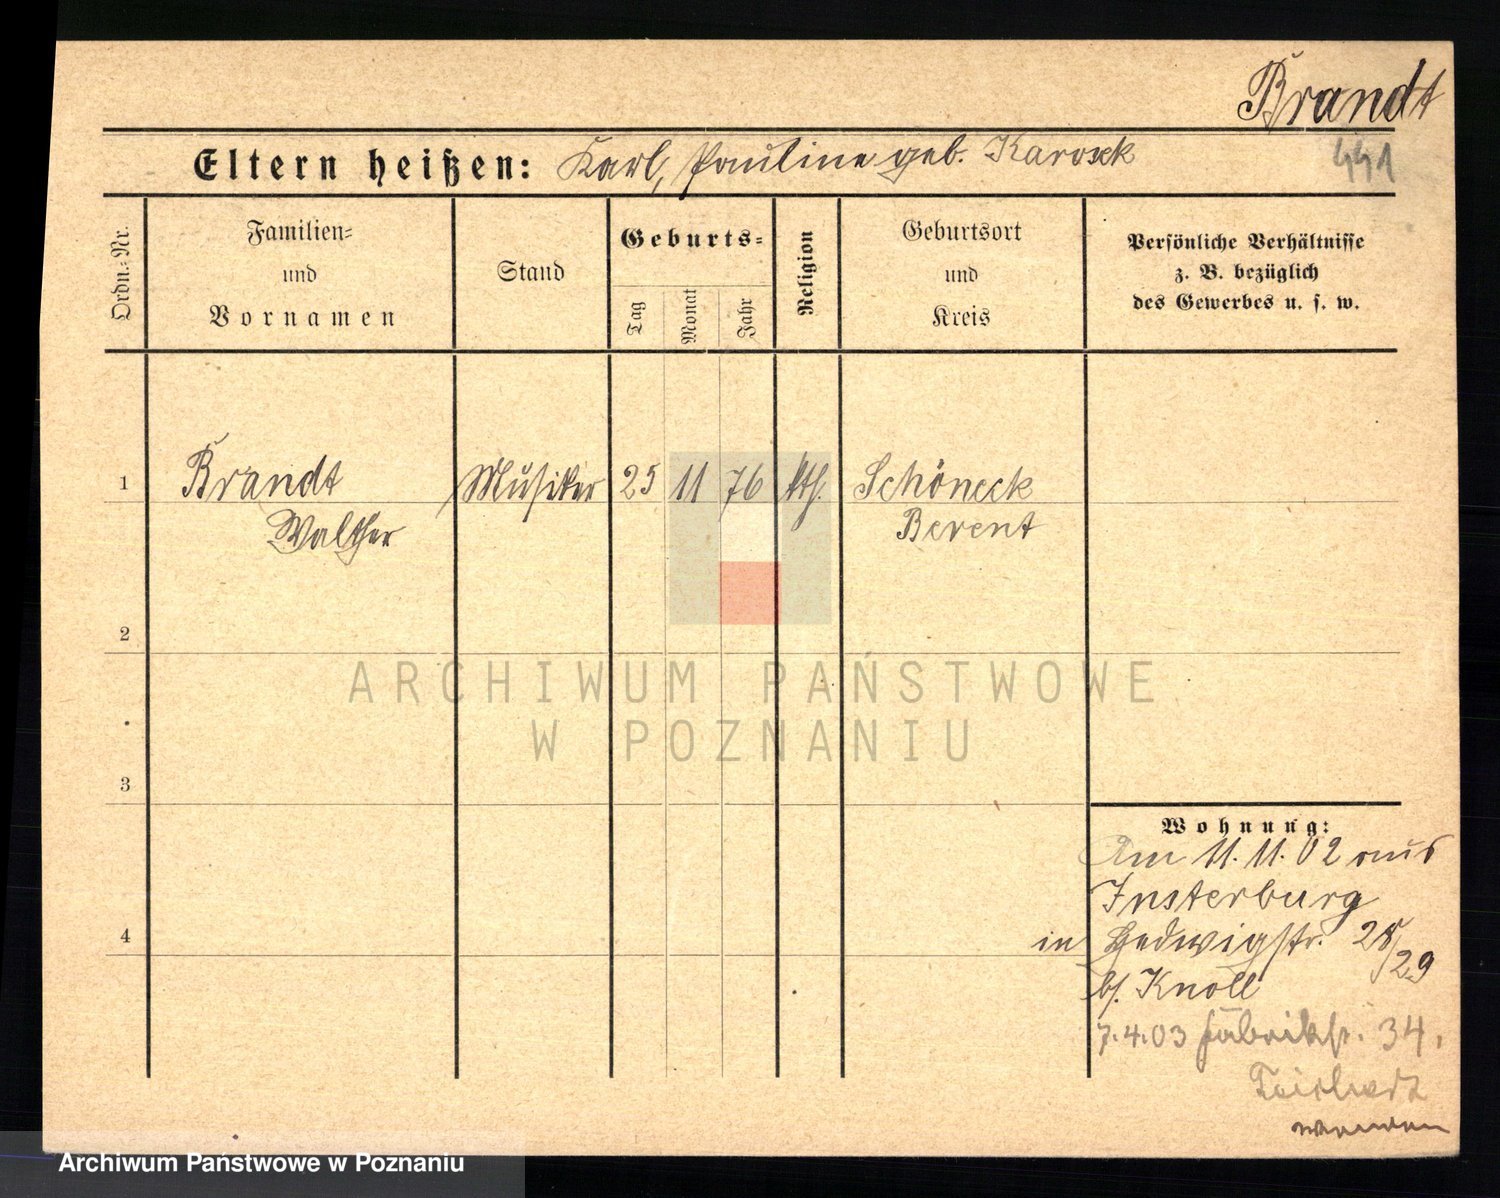 Brandt
Eltern heißen: Karl, Pauline geb. Karosek
441
Ordn.-Nr.
Familien-
und
Vornamen
Stand
Geburts-
Tag
Monat
Jahr
Religion
Geburtsort
und
Kreis
Persönliche Verhältnisse
z. B. bezüglich
des Gewerbes u. s. w.
1 Brandt Musiker 25 11 76 kth. Schöneck
Walther Berent
2
ARCHIWUM PAŃSTWOWE
W POZNANIU
3
Wohnung:
Am 11.11.02 aus
Insterburg
4
in Hedwigstr. 28/29
b/. Knoll
7.4.03 Fabrikstr. 34.
Archiwum Państwowe w Poznaniu